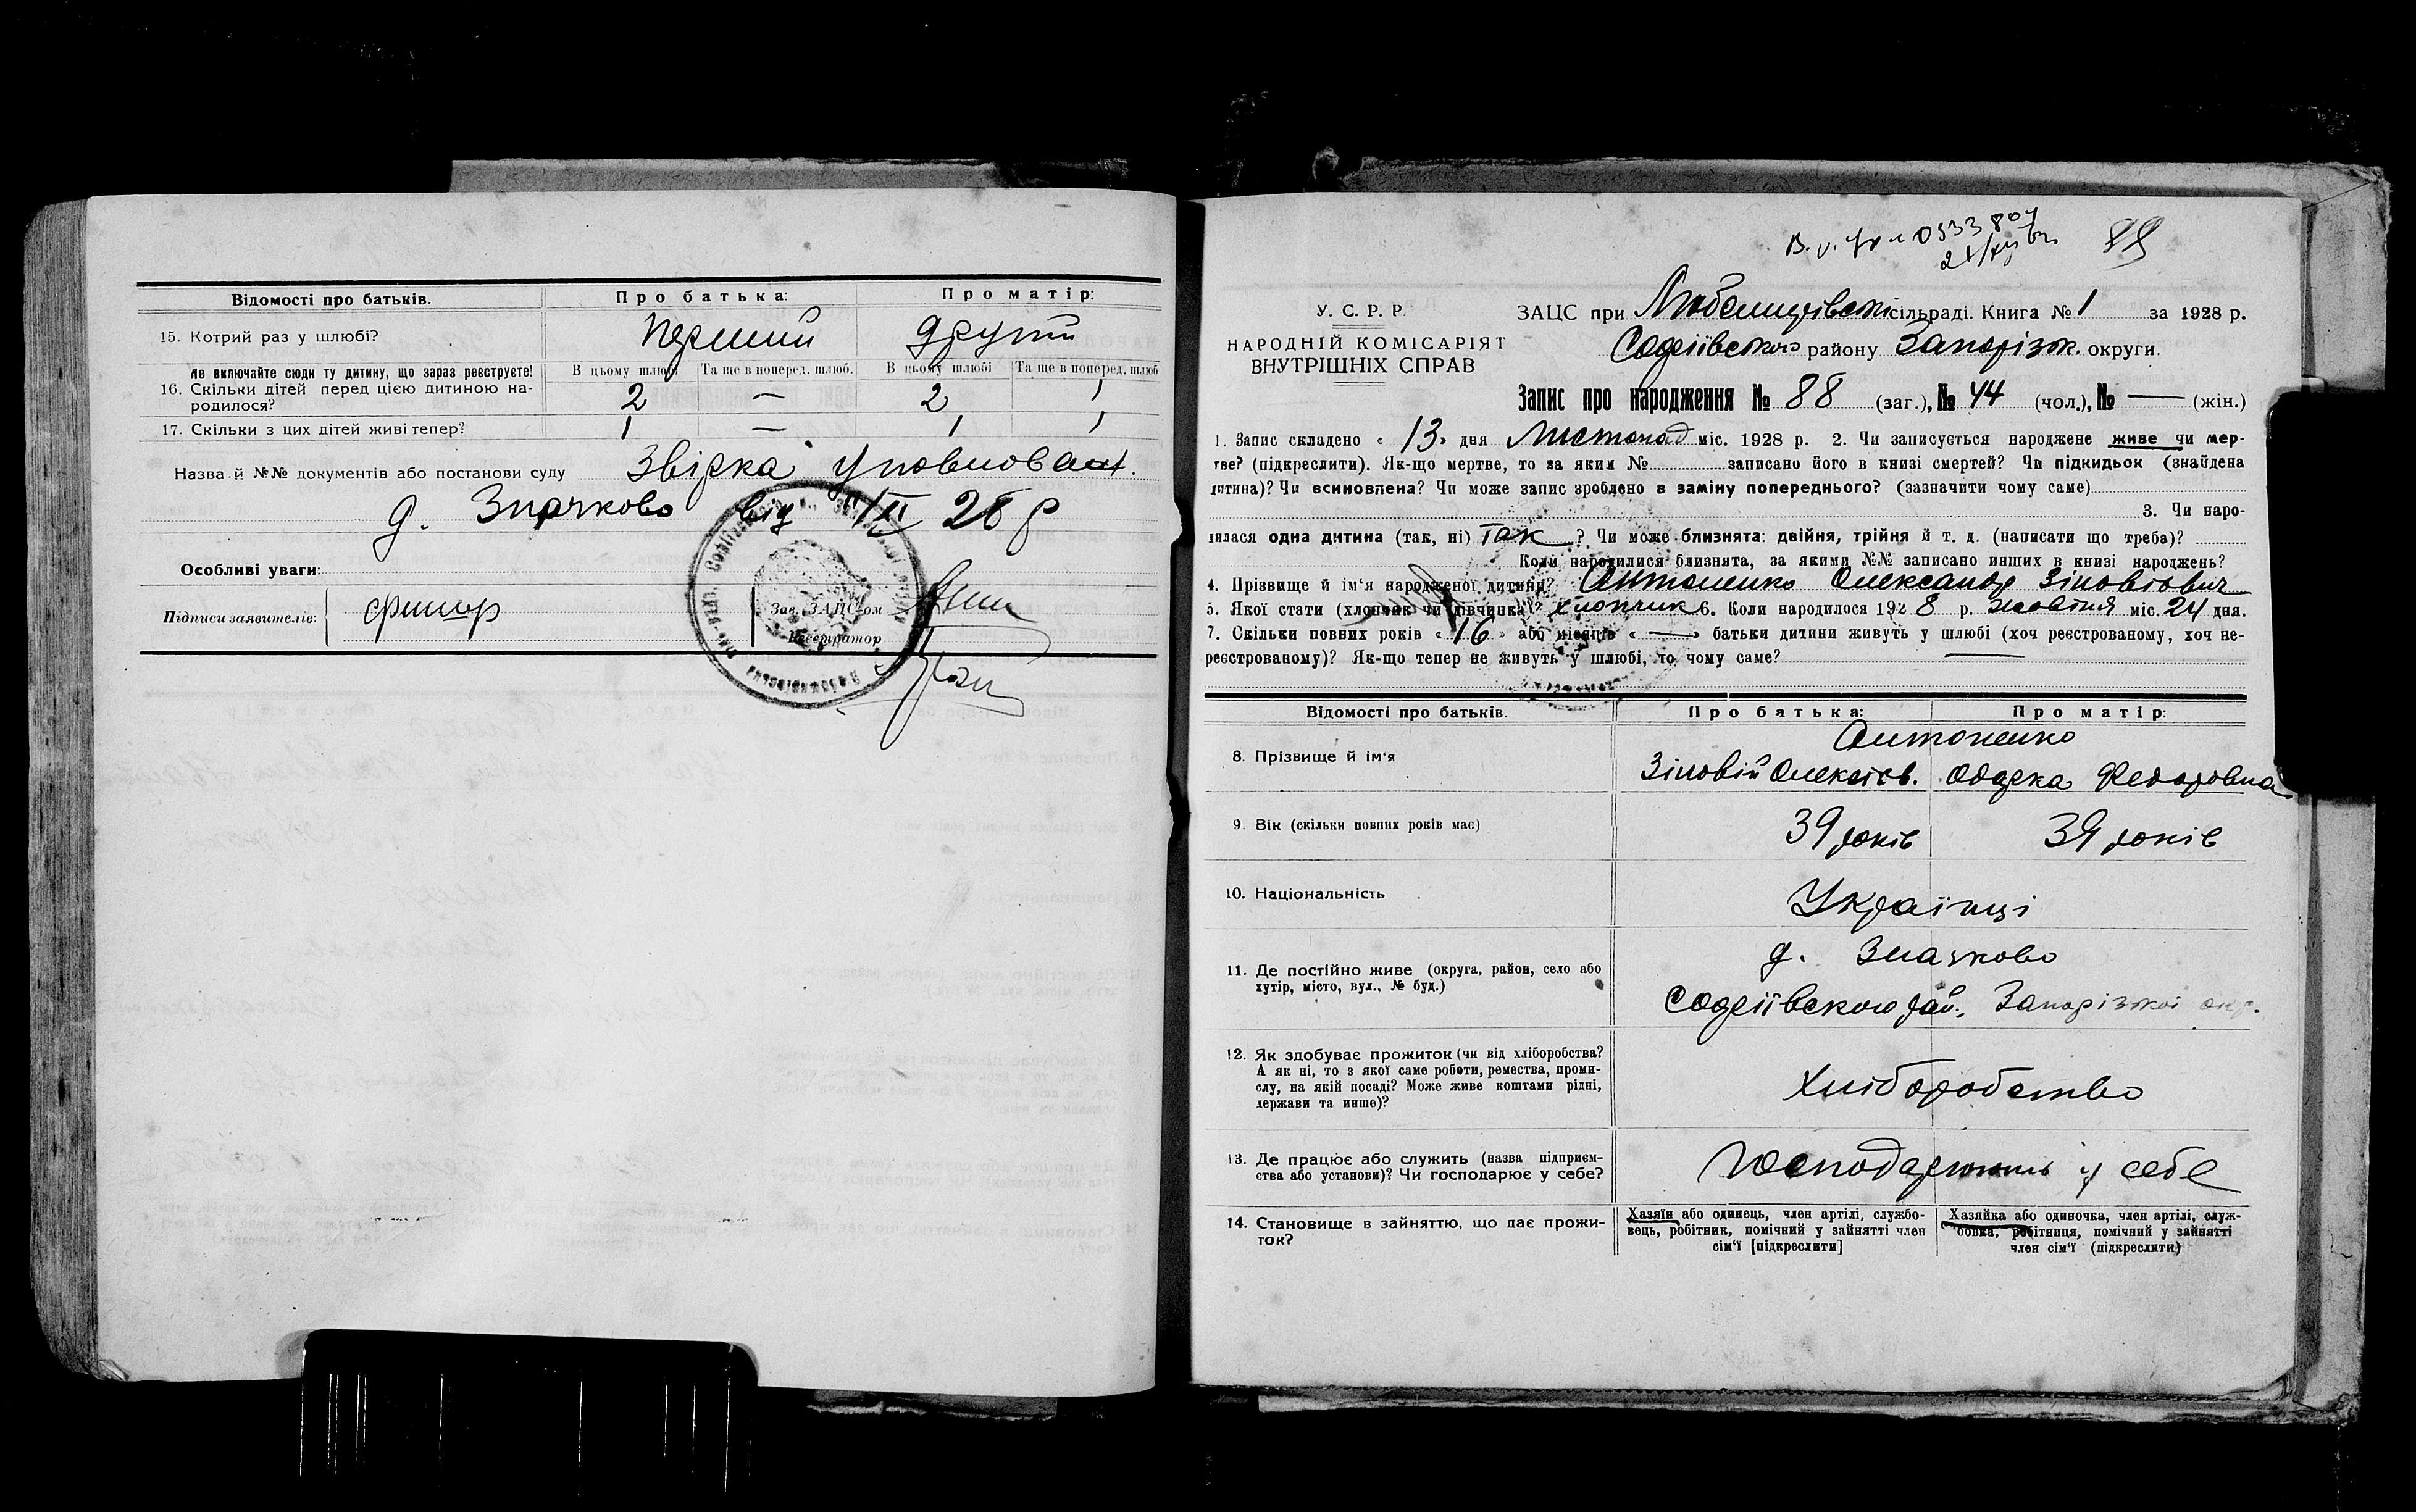 Відомості про батьків. Про батька: Про матір:
15. Котрий раз у шлюбі? перший другий
Не включайте сюди ту дитину, що зараз реєструєте! В цьому шлюбі Та ще в поперед. шлюб. В цьому шлюбі Та ще в поперед. шлюб
16. Скільки дітей перед цією дитиною на-
родилося? 2 — 2 1
17. Скільки з цих дітей живі тепер? 1 — 1 1
Назва й №№ документів або постанови суду Звірка уповноваж.
д. Значково від 28 р
Особливі уваги:
Підписи заявителів: Зав. ЗАЦС-ом
Реєстратор
89
У. С. Р. Р.
НАРОДНІЙ КОМІСАРІЯТ
ВНУТРІШНІХ СПРАВ
ЗАЦС при сільраді. Книга № 1 за 1928 р.
Софіївського району Запорізьк. округи.
Запис про народження № 88 (заг.), № 44 (чол.), № — (жін.)
1. Запис складено « 13 » дня Листопад міс. 1928 р. 2. Чи записується народжене живе чи мер-
тве? (підкреслити). Як-що мертве, то за яким № записано його в книзі смертей? Чи підкидьок (знайдена
дитина)? Чи всиновлена? Чи може запис зроблено в заміну попереднього? (зазначити чому саме)
3. Чи наро-
дилася одна дитина (так, ні) Так ? Чи може близнята: двійня, трійня й т. д. (написати що треба)?
Коли народилися близнята, за якими №№ записано инших в книзі народжень?
4. Прізвище й ім'я народженої дитини? Антоненко Олександр Зіновієвич
5. Якої стати (хлопчик чи дівчинка)? хлопчик 6. Коли народилося 1928 р. жовтня міс. 24 дня.
7. Скільки повних років « 16 » або місяців « — » батьки дитини живуть у шлюбі (хоч реєстрованому, хоч не-
реєстрованому)? Як-що тепер не живуть у шлюбі, то чому саме? —
Відомості про батьків. Про батька: Про матір:
Антоненко
8. Прізвище й ім'я Зіновій Олексієв. Одарка Федоровна
9. Вік (скільки повних років має) 39 років 39 років
10. Національність Українці
д. Значково
11. Де постійно живе (округа, район, село або
хутір, місто, вул., № буд.) Софіївского рай., Запорізкої окр.
12. Як здобуває прожиток (чи від хліборобства?
А як ні, то з якої саме роботи, ремества, проми-
слу, на якій посаді? Може живе коштами рідні,
держави та инше)? Хліборобство
13. Де працює або служить (назва підприєм-
ства або установи)? Чи господарює у себе? Господарюють у себе
14. Становище в зайняттю, що дає прожи-
ток?
Хазяїн або одинець, член артілі, службо-
вець, робітник, помічний у зайнятті член
сім'ї [підкреслити]
Хазяйка або одиночка, член артілі, служ-
бовка, робітниця, помічний у зайнятті
член сім'ї (підкреслити)